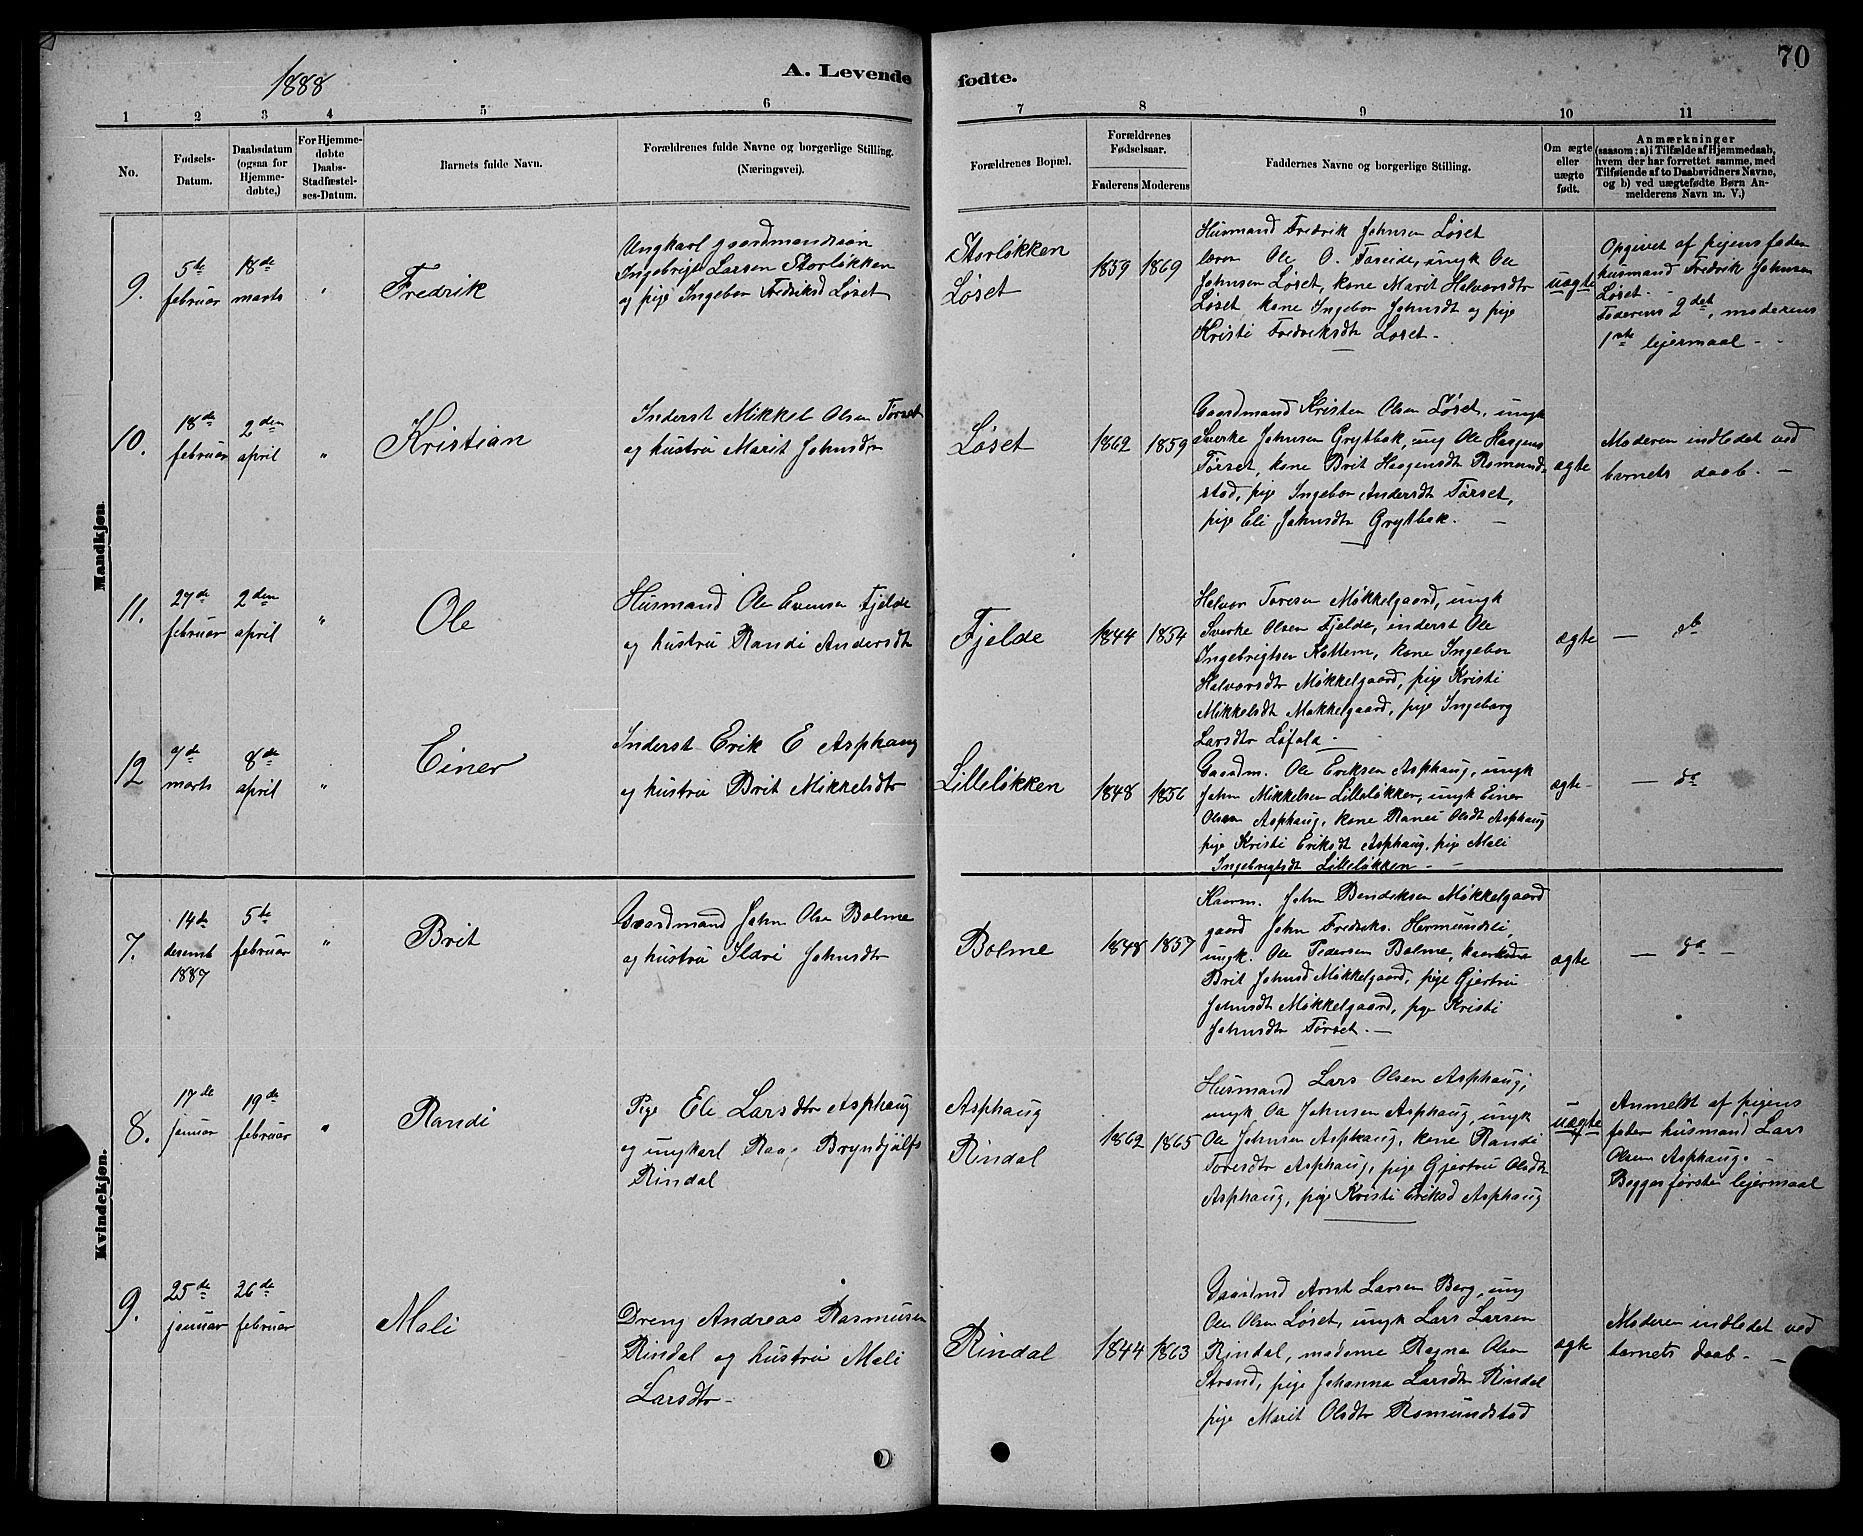 70
1888
A. Levende fødte.
1 2 3 4 5 6 7 8 9 10 11
No.
Fødsels-
Datum.
Daabsdatum
(ogsaa for
Hjemme-
døbte.)
For Hjemme-
døbte
Daabs-
Stadfæstel-
ses-Datum.
Barnets fulde Navn.
Forældrenes fulde Navne og borgerlige Stilling.
(Næringsvei).
Forældrenes Bopæl.
Forældrenes
Fødselsaar.
Faderens Moderens
Faddernes Navne og borgerlige Stilling.
Om ægte
eller
uægte
født.
Anmærkninger
(saasom: a) i Tilfælde af Hjemmedaab,
hvem der har forrettet samme, med
Tilføiende af to Daabsvidners Navne,
og b) ved uægtefødte Børn An-
melderens Navn m. V.)
Mandkjøn.
9.
5te
februar
18de
marts
"
Fredrik
Ungkarl gaardmandssøn
Ingebrigt Larsen Storløkken
og pige Ingebor Fredriksd Løset
Storløkken
Løset
1859 1869
Husmand Fredrik Johnsen Løset
lærer Ole O. Foseide, ungk Ole
Johnsen Løset, kone Marit Halvorsdtr
Løset, kone Ingebor Johnsdt og pige
Kristi Fredriksdt Løset -
uægte
Opgivet af pigens fader
husmand Fredrik Johnsen
Løset. -
Faderens 2det, moderens
1ste lejermaal - -
10.
18de
februar
2den
april
"
Kristian
Inderst Mikkel Olsen Tørset
og hustru Marit Johnsdtr
Løset
1862 1859
Gaardmand Kristen Olsen Løset, ungk
Sverke Johnsen Grytbak, ung Ole Haagens
Tørset, kone Brit Haagensdt Romund-
stad, pige Ingebor Andersdt Tørset,
pige Eli Johnsdtr Grytbak. -
ægte
Moderen indledet ved
barnets daab. -
11.
27de
februar
2den
april
"
Ole
Husmand Ole Evensen Fjelde
og hustru Randi Andersdt
Fjelde
1844 1854
Halvor Toresen Møkkelgaard, ungk
Sverke Olsen Fjelde, inderst Ole
Ingebrigtsen Kattem, kone Ingebor
Halvorsdtr Møkkelgaard, pige Kristi
Mikkelsdt Møkkelgaard, pige Ingeborg
Larsdtr Løfald -
ægte
— do
12
7de
marts
8de
april
"
Einer
Inderst Erik E Asphaug
og hustru Brit Mikkelsdtr
Lilleløkken
1848 1856
Gaardm. Ole Eriksen Asphaug, ungk
John Mikkelsen Lilleløkken, ungk Einer
Olsen Asphaug, kone Ranei Olsdt Asphaug
pige Kristi Eriksdt Asphaug, pige Mali
Ingebrigtsdt Lilleløkken -
ægte -
— do
Kvindekjøn.
7.
14de
desemb
1887
5te
februar
"
Brit
Gaardmand John Olsen Bolme
og hustru Ildri Johnsdtr
Bolme
1848 1857
Kaarm. John Bendiksen Møkkelgaard
gaard John Fredriks. Hermundsli,
ungk. Ole Pedersen Bolme, kaarkone
Brit Johnsd Møkkelgaard, pige Gjertru
Johnsdt Møkkelgaard, pige Kristi
Johnsdtr Tørset. -
ægte
— do -
8.
17de
januar
19de
februar
"
Randi
Pige Eli Larsdtr Asphaug
og ungkarl Raag Bryndjulfs
Rindal
Asphaug
Rindal
1862 1865
Husmand Lars Olsen Asphaug,
ungk Ole Johnsen Asphaug, ungk
Ole Johnsen Asphaug, kone Randi
Toresdtr Asphaug, pige Gjertru Olsdtr
Asphaug, pige Kristi Eriksd Asphaug
uægte
Anmeldt af pigens
fader husmand Lars
Olsen Asphaug. -
Begges første lejermaal
9.
25de
januar
26de
februar
Mali
Dreng Andreas Rasmusen
Rindal og hustru Mali
Larsdtr -
Rindal
1844 1863
Gaardmd Arnt Larsen Berg, ung
Ole Olsen Løset, ungk Lars Larsen
Rindal, madame Ragna Olsen
Strand, pige Johanna Larsdtr Rindal
pige Marit Olsdtr Romundstad
ægte
Moderen indledet ved
barnets daab. -